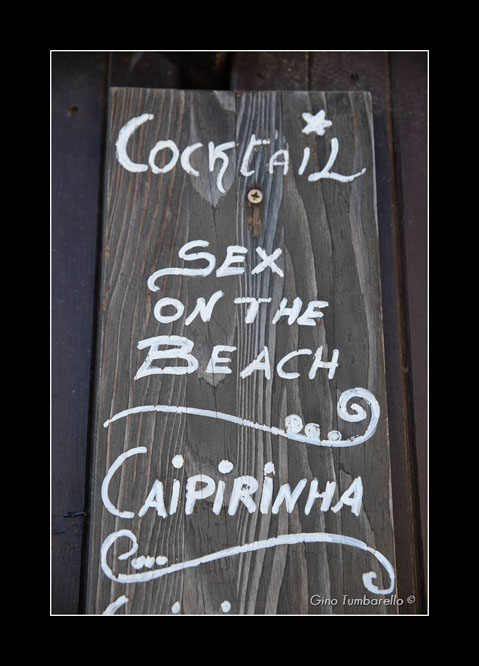 COCKTAIL
SEX
ON THE
BEACH
CAIPIRINHA
Gino Tumbarello ©